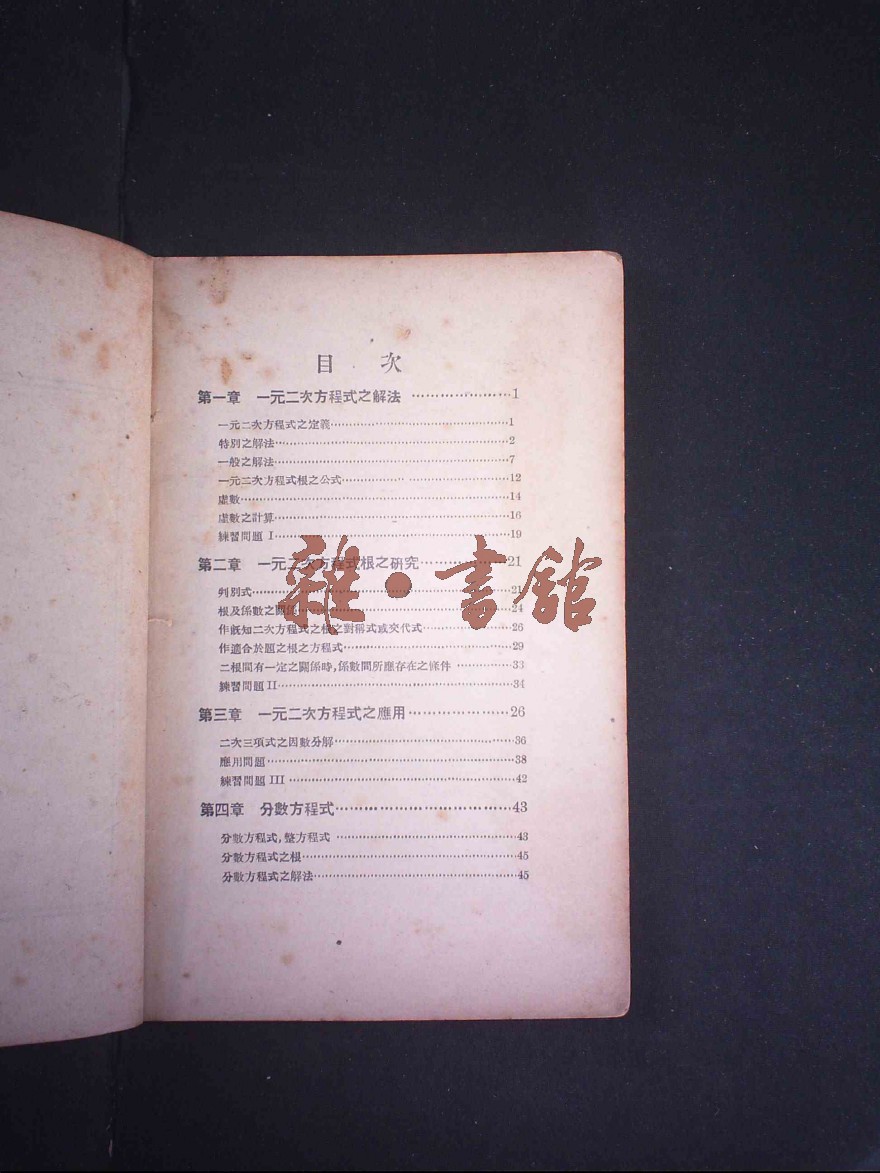 目 次
第一章 一元二次方程式之解法 …………………1
一元二次方程式之定義……………………………1
特別之解法……………………………………2
一般之解法……………………………………7
一元二次方程式根之公式…………………………12
虛數…………………………………………14
虛數之計算……………………………………16
練習問題 I……………………………………19
第二章 一元二次方程式根之研究……………21
判別式…………………………………………21
根及係數之關係…………………………………24
作旣知二次方程式之根之對稱式或交代式……………26
作適合於題之根之方程式…………………………29
二根間有一定之關係時,係數間所應存在之條件 ………33
練習問題 II……………………………………34
第三章 一元二次方程式之應用…………………26
二次三項式之因數分解……………………………36
應用問題………………………………………38
練習問題 III …………………………………42
第四章 分數方程式………………………………43
分數方程式,整方程式 ……………………………43
分數方程式之根…………………………………45
分數方程式之解法………………………………45
雜·書館